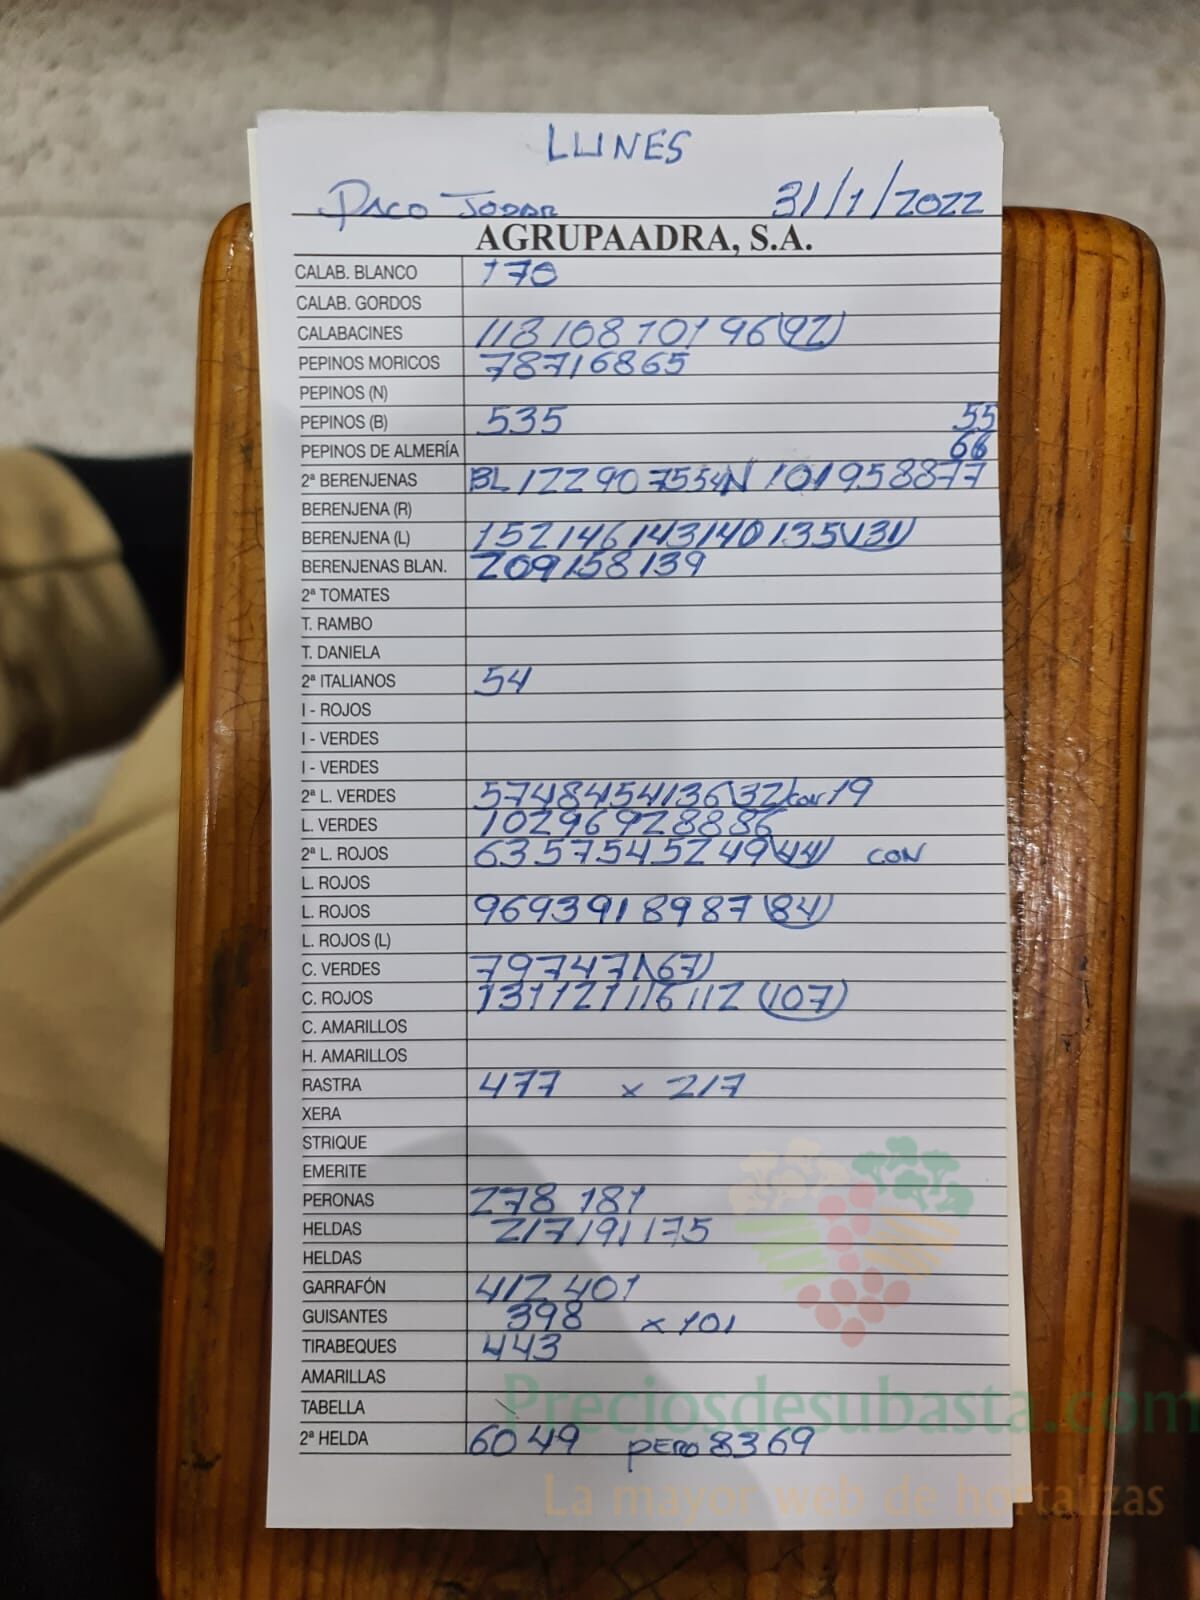 LUNES
PACO JODAR 31/1/2022
AGRUPAADRA, S.A.
CALAB. BLANCO 170
CALAB. GORDOS
CALABACINES 118 108 101 96 (92)
PEPINOS MORICOS 78 71 68 65
PEPINOS (N)
PEPINOS (B) 535 55
PEPINOS DE ALMERÍA 66
2ª BERENJENAS BL 122 90 75 54 N 101 95 88 77
BERENJENA (R)
BERENJENA (L) 152 146 143 140 135 (131)
BERENJENAS BLAN. 209 158 139
2ª TOMATES
T. RAMBO
T. DANIELA
2ª ITALIANOS 54
I - ROJOS
I - VERDES
I - VERDES
2ª L. VERDES 57 48 45 41 36 (32) 19
L. VERDES 102 96 92 88 86
2ª L. ROJOS 63 57 54 52 49 (44) CON
L. ROJOS
L. ROJOS 96 93 91 89 87 (84)
L. ROJOS (L)
C. VERDES 79 74 71 (67)
C. ROJOS 131 121 116 112 (107)
C. AMARILLOS
H. AMARILLOS
RASTRA 477 x 217
XERA
STRIQUE
EMERITE
PERONAS 278 181
HELDAS 217 191 175
HELDAS
GARRAFÓN 412 401
GUISANTES 398 x 101
TIRABEQUES 443
AMARILLAS
TABELLA
2ª HELDA 60 49 PERO 83 69
Preciosdesubasta.com
La mayor web de hortalizas